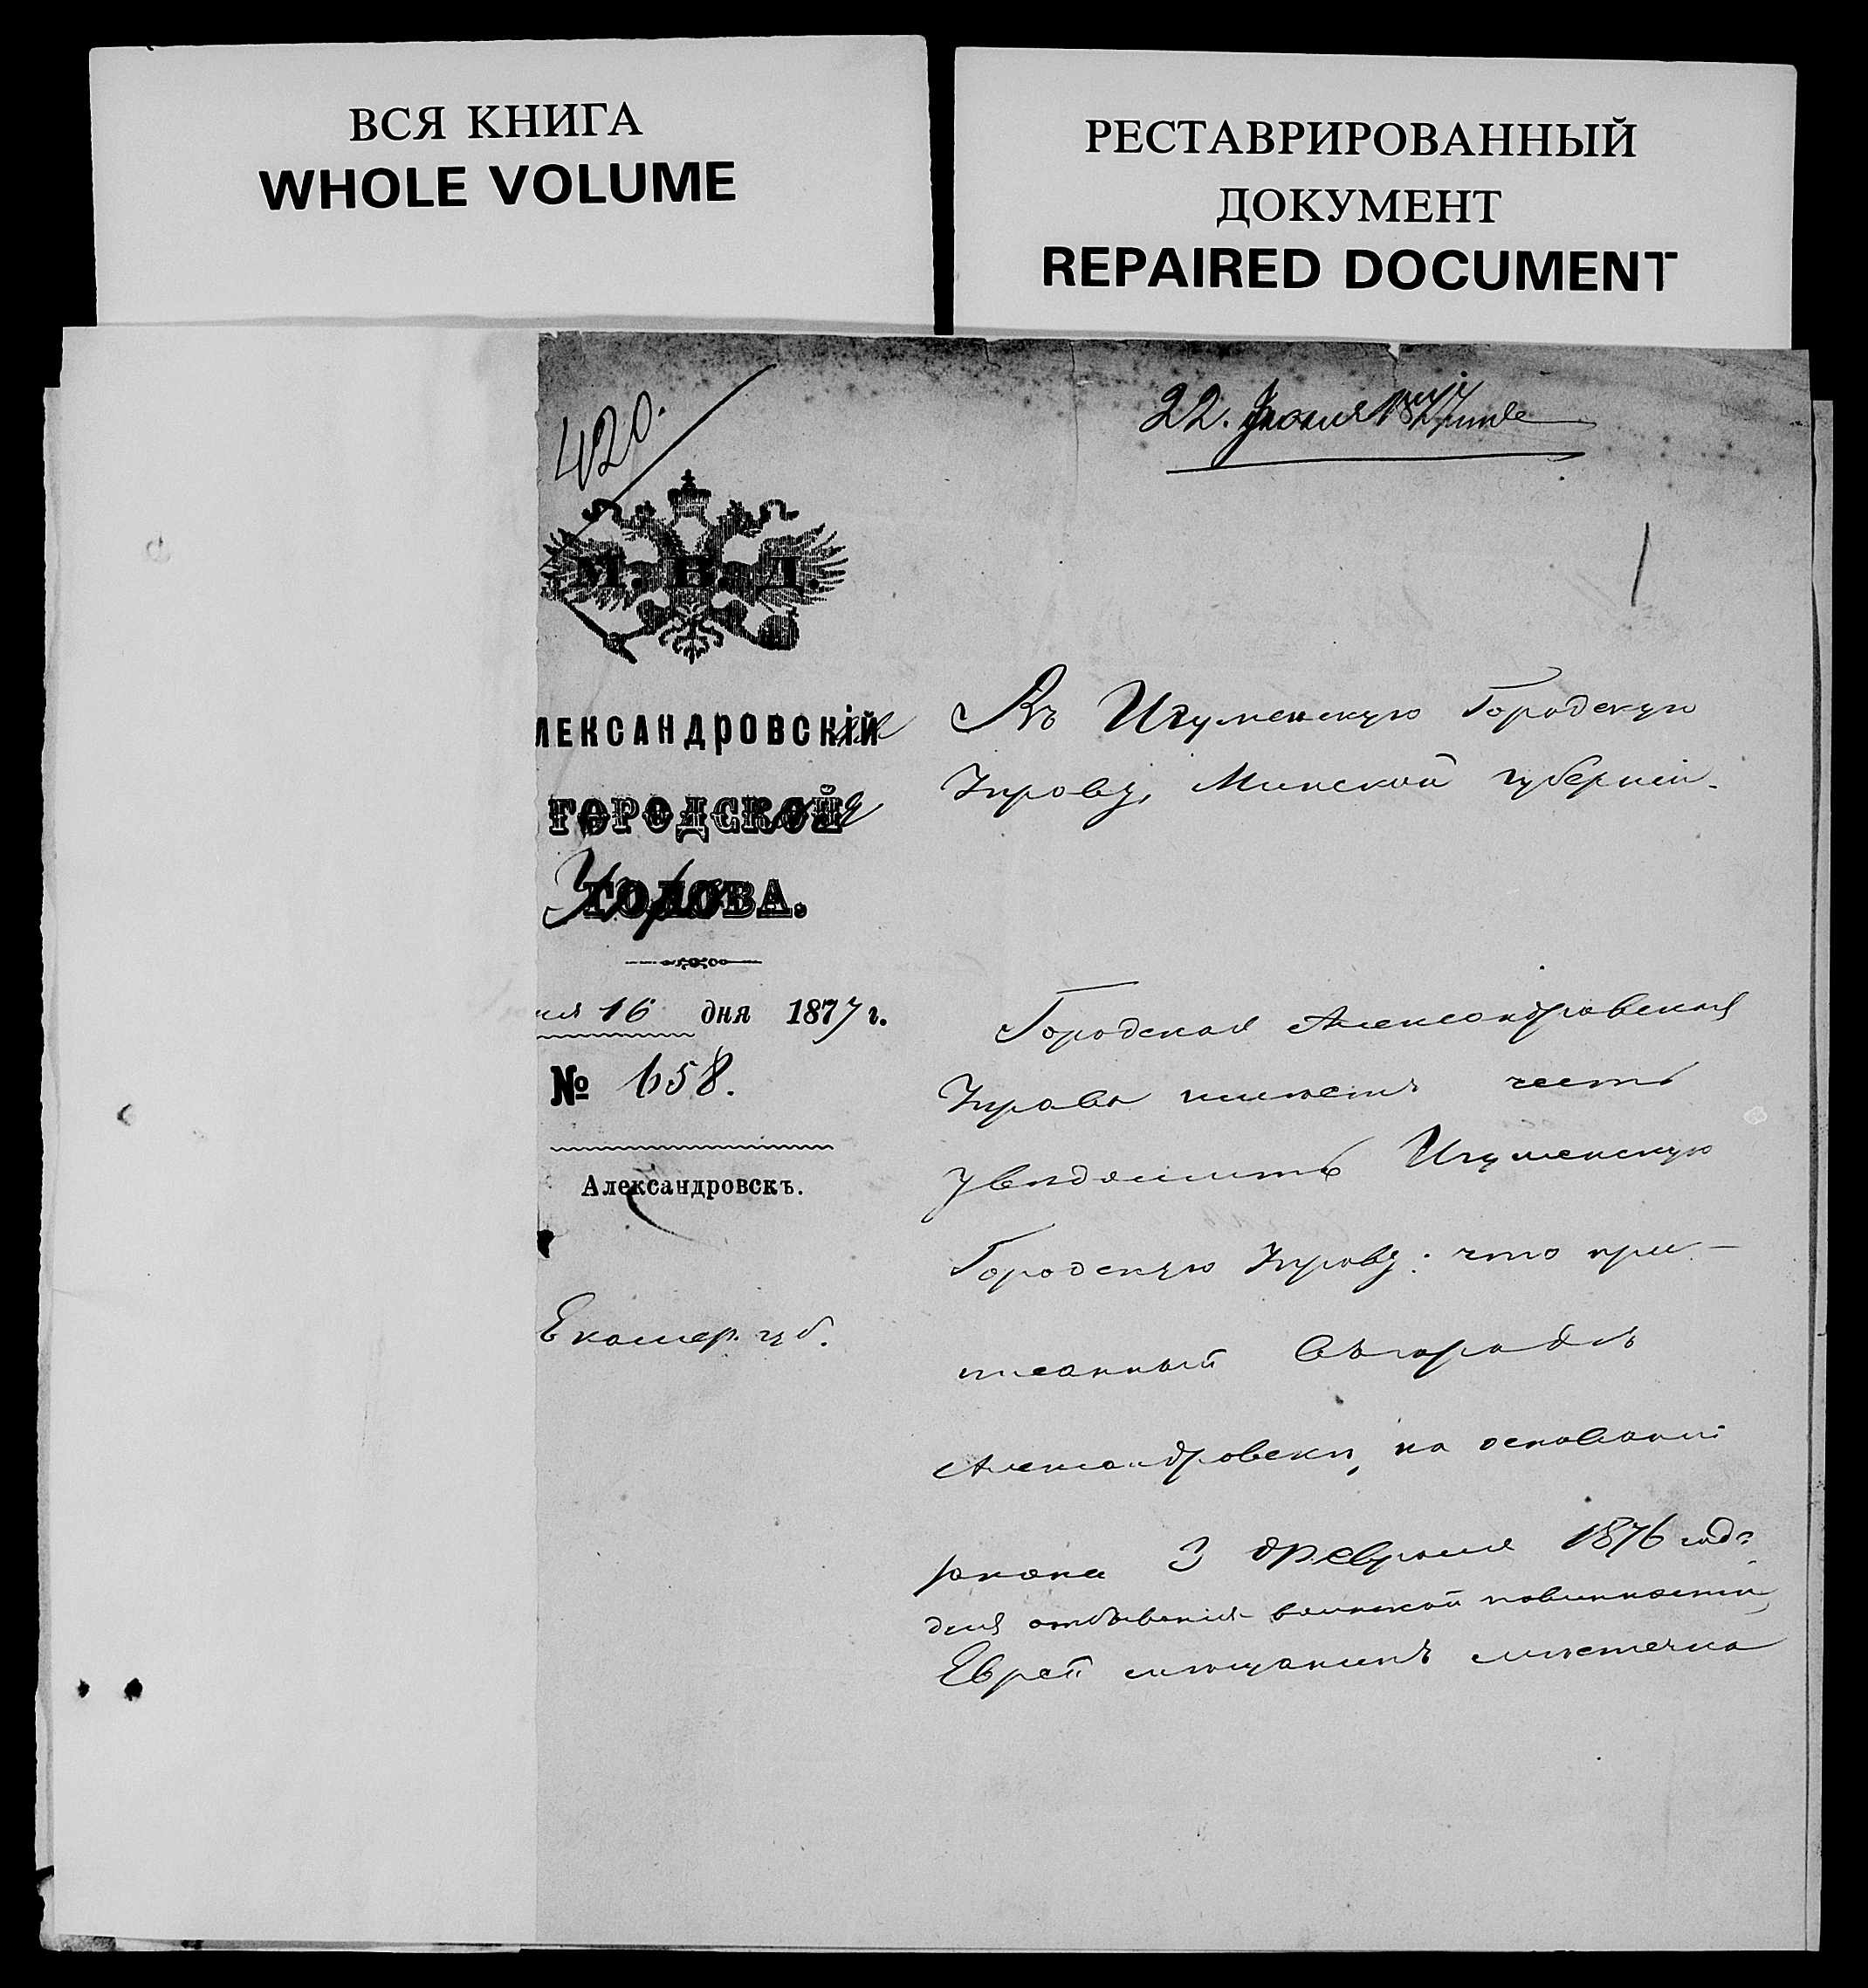 ВСЯ КНИГА
WHOLE VOLUME
РЕСТАВРИРОВАННЫЙ
ДОКУМЕНТ
REPAIRED DOCUMENT
420.
22.
1
М. В. Д.
ЛЕКСАНДРОВСКІЙ
ГОРОДСКОЙ
ГОЛОВА.
16 дня 1877 г.
№ 658.
Александровскъ.
Екатер. губ.
Въ Игуменскую Городскую
Управу, Минской губерніи.
Городская Александровская
Управа имѣетъ честь
увѣдомить Игуменскую
Городскую Управу: что при-
писанный въ городѣ
Александровскѣ, на основаніи
закона 3 Февраля 1876 года
для отбыванія воинской повинности,
Еврей мѣщанинъ мѣстечка